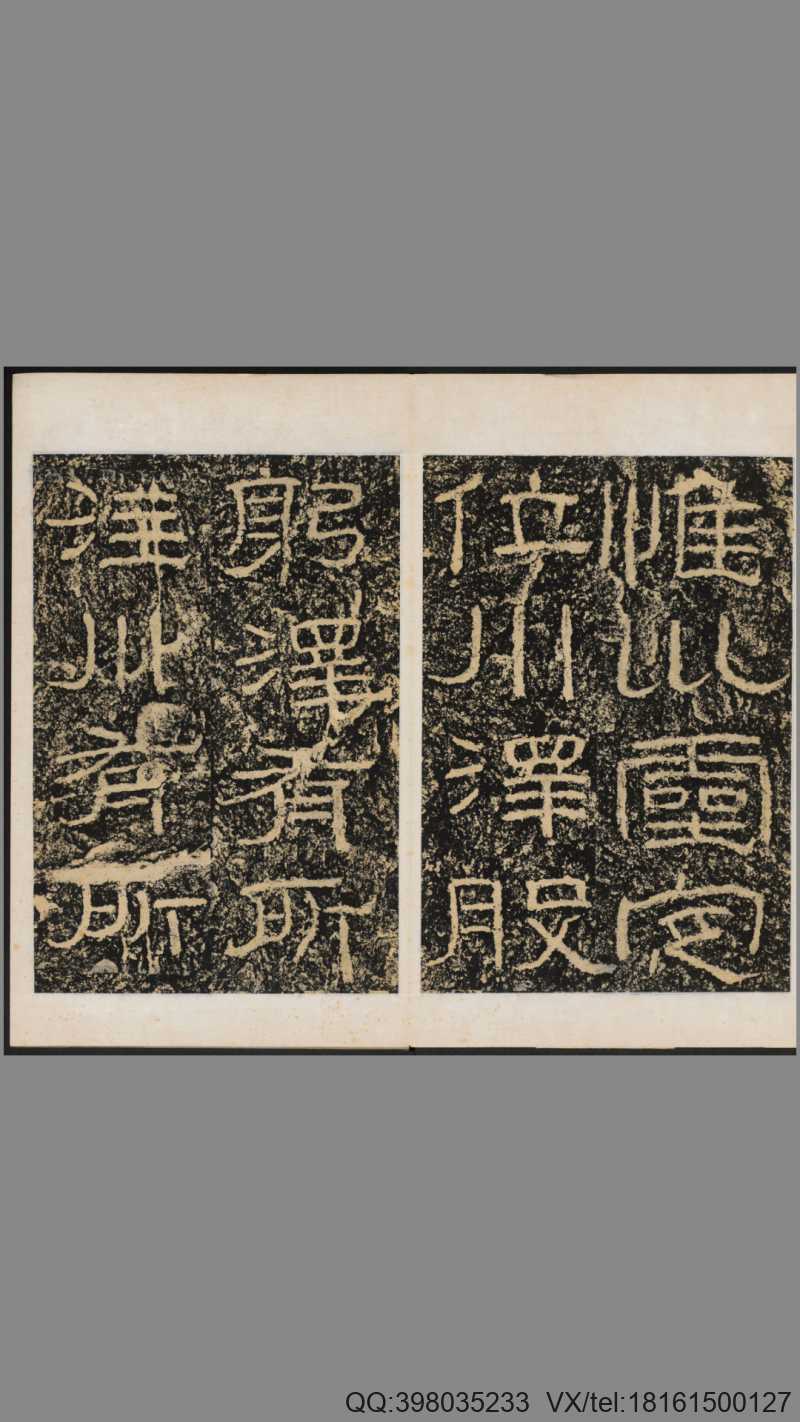 惟𡿦靈定
位川澤股
躬澤有所
注川有所
QQ:398035233 VX/tel:18161500127